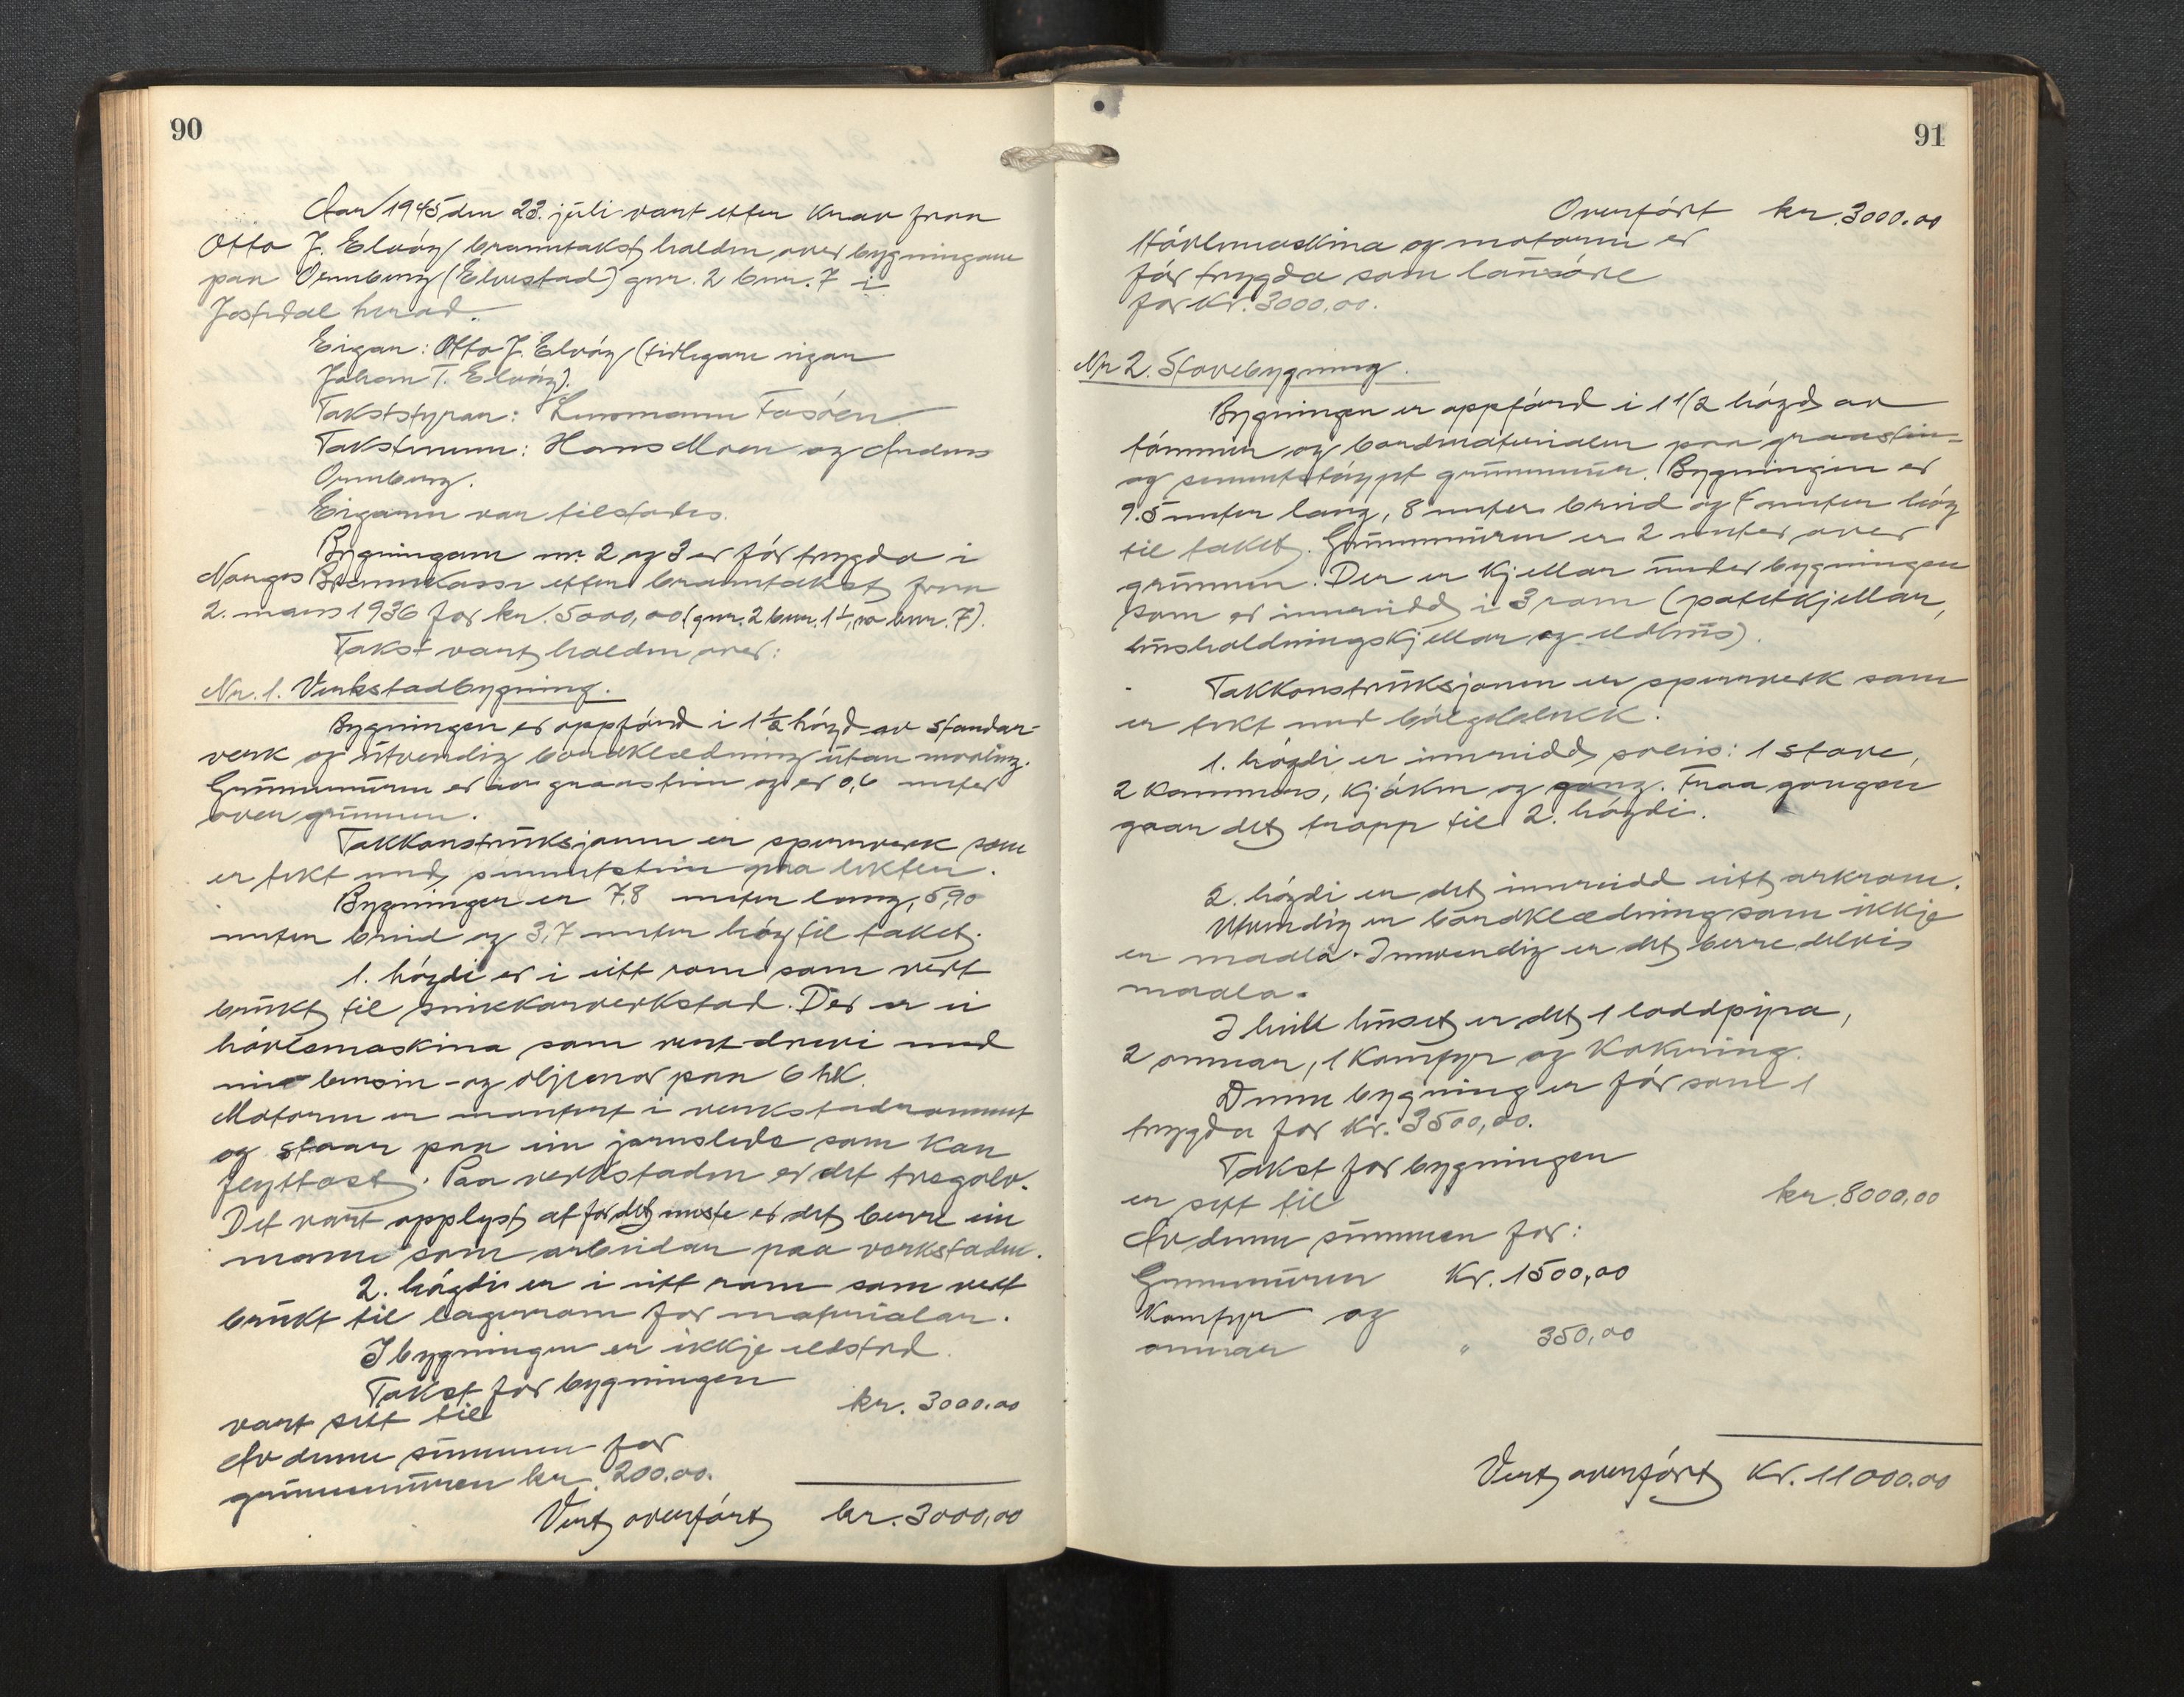 90
Aar 1945 den 23. juli vart etter krav fraa
Otto J. Elvøy branntakst halden over bygningane
paa Ormberg (Elvestad) gnr. 2 bnr. 7 i
Jostedal herad.
Eigar: Otto J. Elvøy (tidlegare eigar
Johan T. Elvøy).
Takststyrar: Lensmann Fasøen
Takstmenn: Hans Moen og Anders
Ormberg.
Eigaren var tilstades.
Bygningane nr. 2 og 3 er før trygda i
Norges Brannkasse etter branntakst fraa
2. mars 1936 for kr. 5000,00 (gnr. 2 bnr. 1, no bnr. 7).
Takst vart halden over:
Nr. 1. Verkstadbygning.
Bygningen er oppførd i 1 1/2 høgd av standar-
verk og utvendig bordklædning utan maaling.
Grunnmuren er av graastein og er 0,6 meter
over grunnen.
Takkonstruksjonen er sperrverk som
er tekt med sementstein paa lekter.
Bygningen er 7.8 meter lang, 5,90
meter breid og 3,7 meter høg til taket.
1. høgdi er i eitt rom som vert
brukt til snikkarverkstad. Der er ei
høvlemaskina som vert drevi med
ein bensin- og oljemotor paa 6 hk.
Motoren er montert i verkstadrommet
og staar paa ein jarnslede som kan
flyttast. Paa verkstaden er det tregolv.
Det vart opplyst at for det meste er det berre ein
mann som arbeidar paa verkstaden.
2. høgdi er i eitt rom som vert
brukt til lagerrom for materialar.
I bygningen er ikkje eldstad.
Takst for bygningen
vart sett til kr. 3000.00
Av denne summen for
grunnmuren kr. 200.00.
Vert overført kr. 3000,00
91
Overført kr. 3000.00
Høvlemaskina og motoren er
før trygda som lausøre
for kr. 3000,00.
Nr 2. Stovebygning.
Bygningen er oppførd i 1 1/2 høgd av
tømmer og bordmaterialer paa graastein-
og sementstøypt grunnmur. Bygningen er
9.5 meter lang, 8 meter breid og 7 meter høg
til taket. Grunnmuren er 2 meter over
grunnen. Der er kjellar under bygningen
som er innreidd i 3 rom (potetkjellar,
husholdningskjellar og eldhus).
Takkonstruksjonen er sperrverk som
er tekt med bølgeblekk.
1. høgdi er innreidd soleis: 1 stove,
2 kammers, kjøken og gang. Fraa gangen
gaar det trapp til 2. høgdi.
2. høgdi er det innreidd eitt arkrom.
Utvendig er bordklædning som ikkje
er maala. Innvendig er det berre delvis
maala.
I heile huset er det 1 loddpipa,
2 omnar, 1 komfyr og kokering.
Denne bygning er før som 1
trygda for kr. 3500,00.
Takst for bygningen
er sett til kr. 8000,00
Av denne summen for:
Grunnmuren Kr. 1500,00
Komfyr og
omnar " 350,00
Vert overført Kr. 11000.00